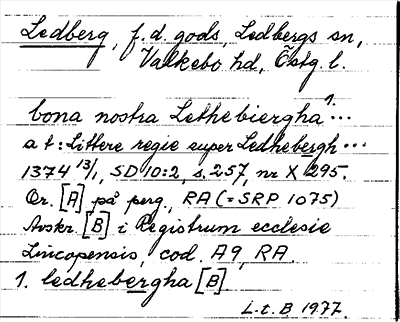 Ledberg, f.d. gods, Ledbergs sn,
Valkebo hd, Östg. l.
bona nostra Lethebiergha¹· ...
a t: Littere regie super Ledhebergh ...
1374 13/1, SD 10:2, s. 257, nr X 295.
Or. [A] på perg., RA (= SRP 1075)
Avskr. [B] i Registrum ecclesie
Lincopensis, cod. A9, RA.
1. ledhebergha [B]
L.t. B 1977.